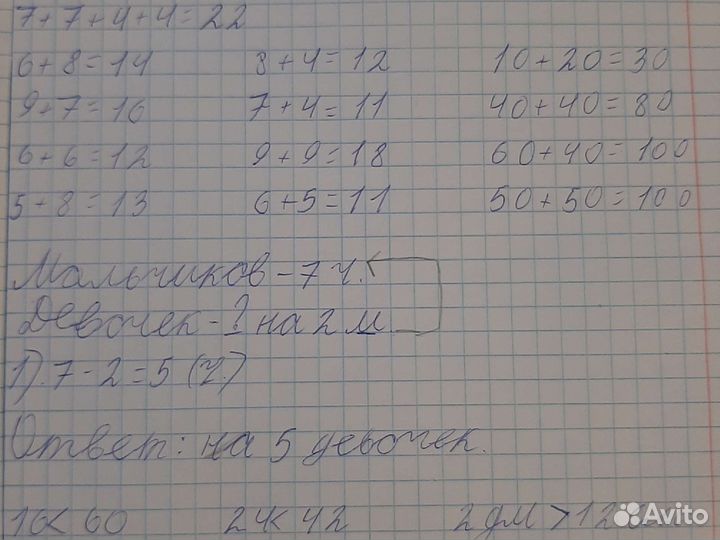 7+7+4+4=22
6+8=14 8+4=12 10+20=30
9+7=16 7+4=11 40+40=80
6+6=12 9+9=18 60+40=100
5+8=13 6+5=11 50+50=100
Мальчиков - 7 ч.
Девочек - ? на 2 м
1). 7-2=5 (ч.)
Ответ: на 5 девочек.
16<60 24<42 2 дм >12
Avito